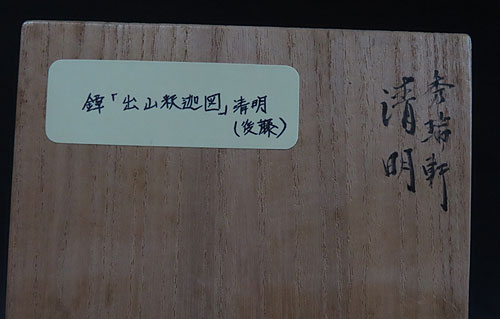 鐔「出山釈迦図」清明
(後藤)
秀瑞軒
清明